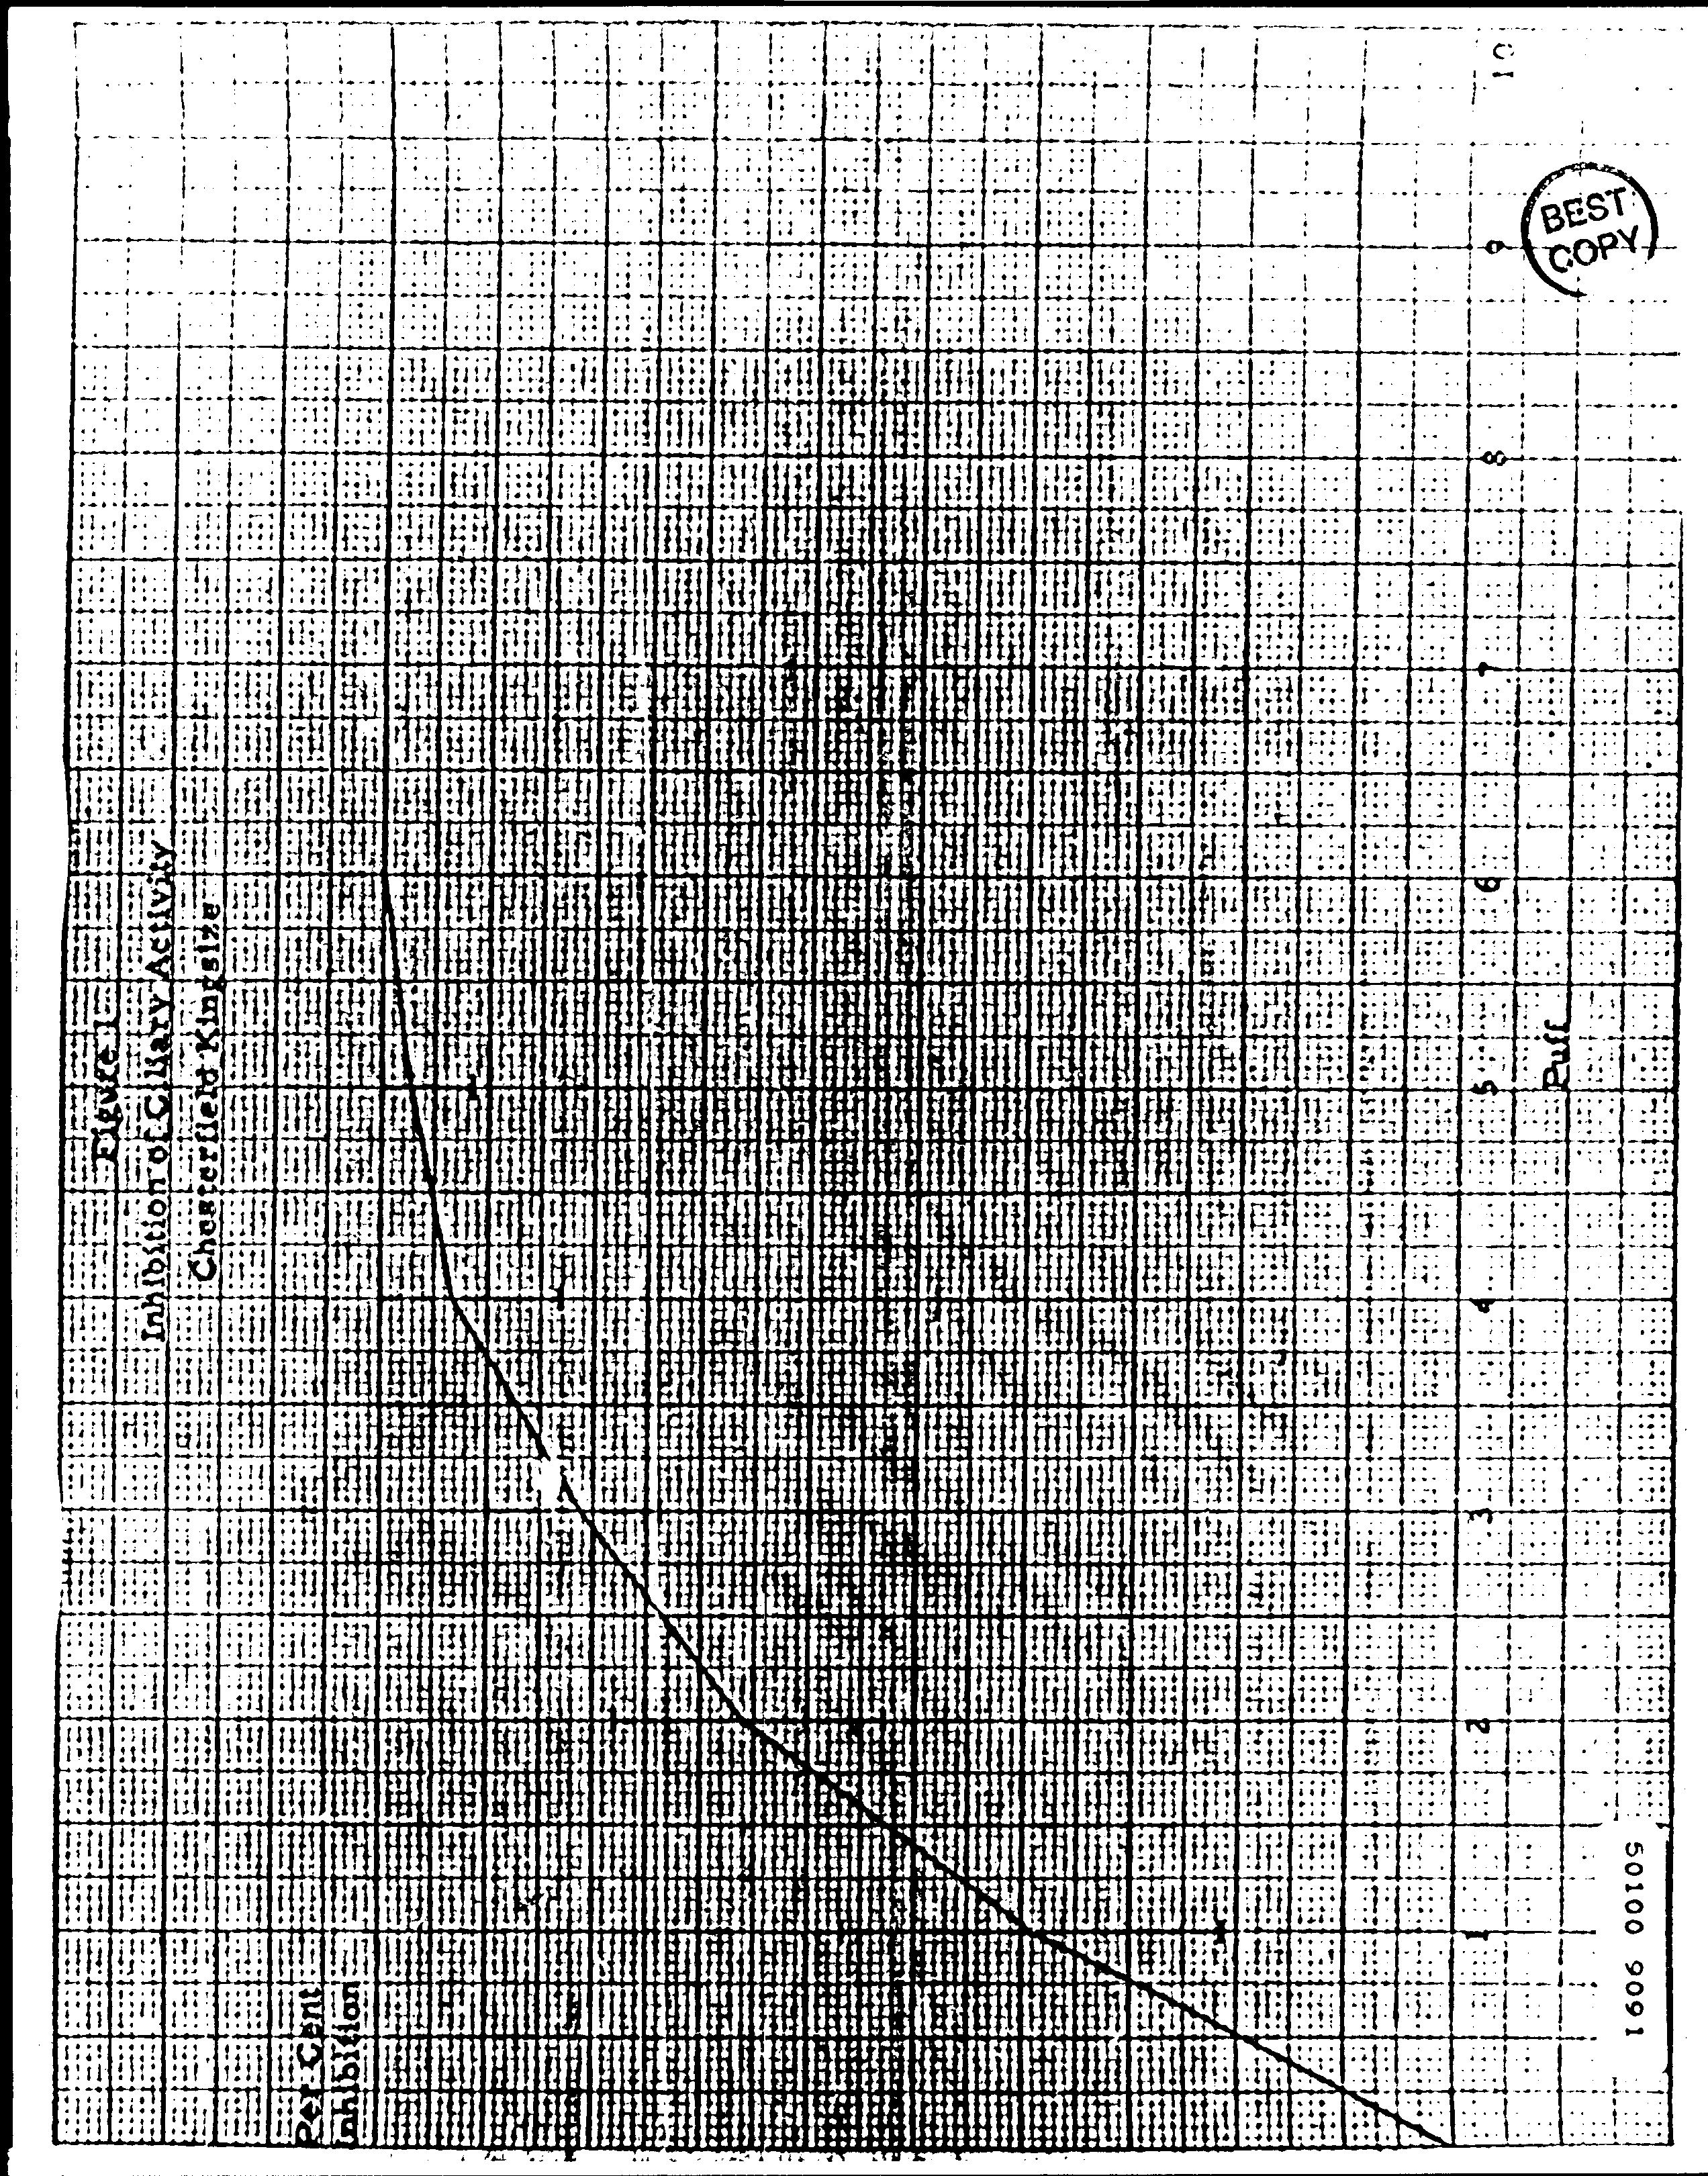 Figure 1
Inhibition of Ciliary Activity
Chesterfield Kingsize
Per Cent
Inhibition
1 2 3 4 5 6 7 8 9 10
Puff
BEST
COPY
50100 9091